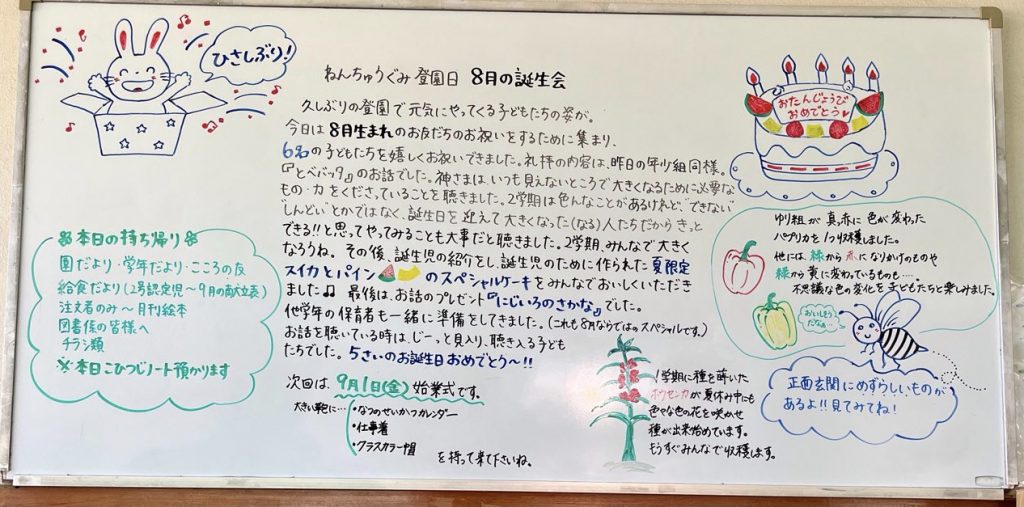 ひさしぶり!
ねんちゅうぐみ 登園日 8月の誕生会
久しぶりの登園で元気にやってくる子どもたちの姿が。
今日は8月生まれのお友だちのお祝いをするために集まり、
6名の子どもたちを嬉しくお祝いできました。礼拝の内容は、昨日の年少組同様。
『とべバッタ』のお話でした。神さまは、いつも見えないところで大きくなるために必要な
もの・力をくださっていることを聴きました。2学期は色んなことがあるけれど、"できない"
"しんどい"とかではなく、誕生日を迎えて大きくなった(なる)人たちだからきっと
できる!!と思ってやってみることも大事だと聴きました。2学期、みんなで大きく
なろうね。その後、誕生児の紹介をし、誕生児のために作られた夏限定
スイカとパインのスペシャルケーキをみんなでおいしくいただき
ました♫ 最後は、お話のプレゼント『にじいろのさかな』でした。
他学年の保育者も一緒に準備をしてきました。(これも8月ならではのスペシャルです。)
お話を聴いている時は、じーっと見入り、聴き入る子ども
たちでした。5さいのお誕生日おめでとう〜!!
次回は、9月1日(金)始業式です。
大きい鞄に…
・なつのせいかつカレンダー
・仕事着
・クラスカラー帽
を持って来て下さいね。
本日の持ち帰り
園だより・学年だより・こころの友
給食だより(2号認定児〜9月の献立表)
注文者のみ〜月刊絵本
図書係の皆様へ
チラシ類
※本日こひつじノート預かります
おたんじょうび
おめでとう♥
ゆり組が真っ赤に色が変わった
パプリカを1つ収穫しました。
他には、緑から赤になりかけのものや
緑から黄に変わっているものも…。
不思議な色の変化を子どもたちと楽しみました。
おいしそう
だなぁ〜
正面玄関にめずらしいものが
あるよ!!見てみてね!
1学期に種を蒔いた
ホウセンカが夏休み中にも
色々な色の花を咲かせ
種が出来始めています。
もうすぐみんなで収穫します。